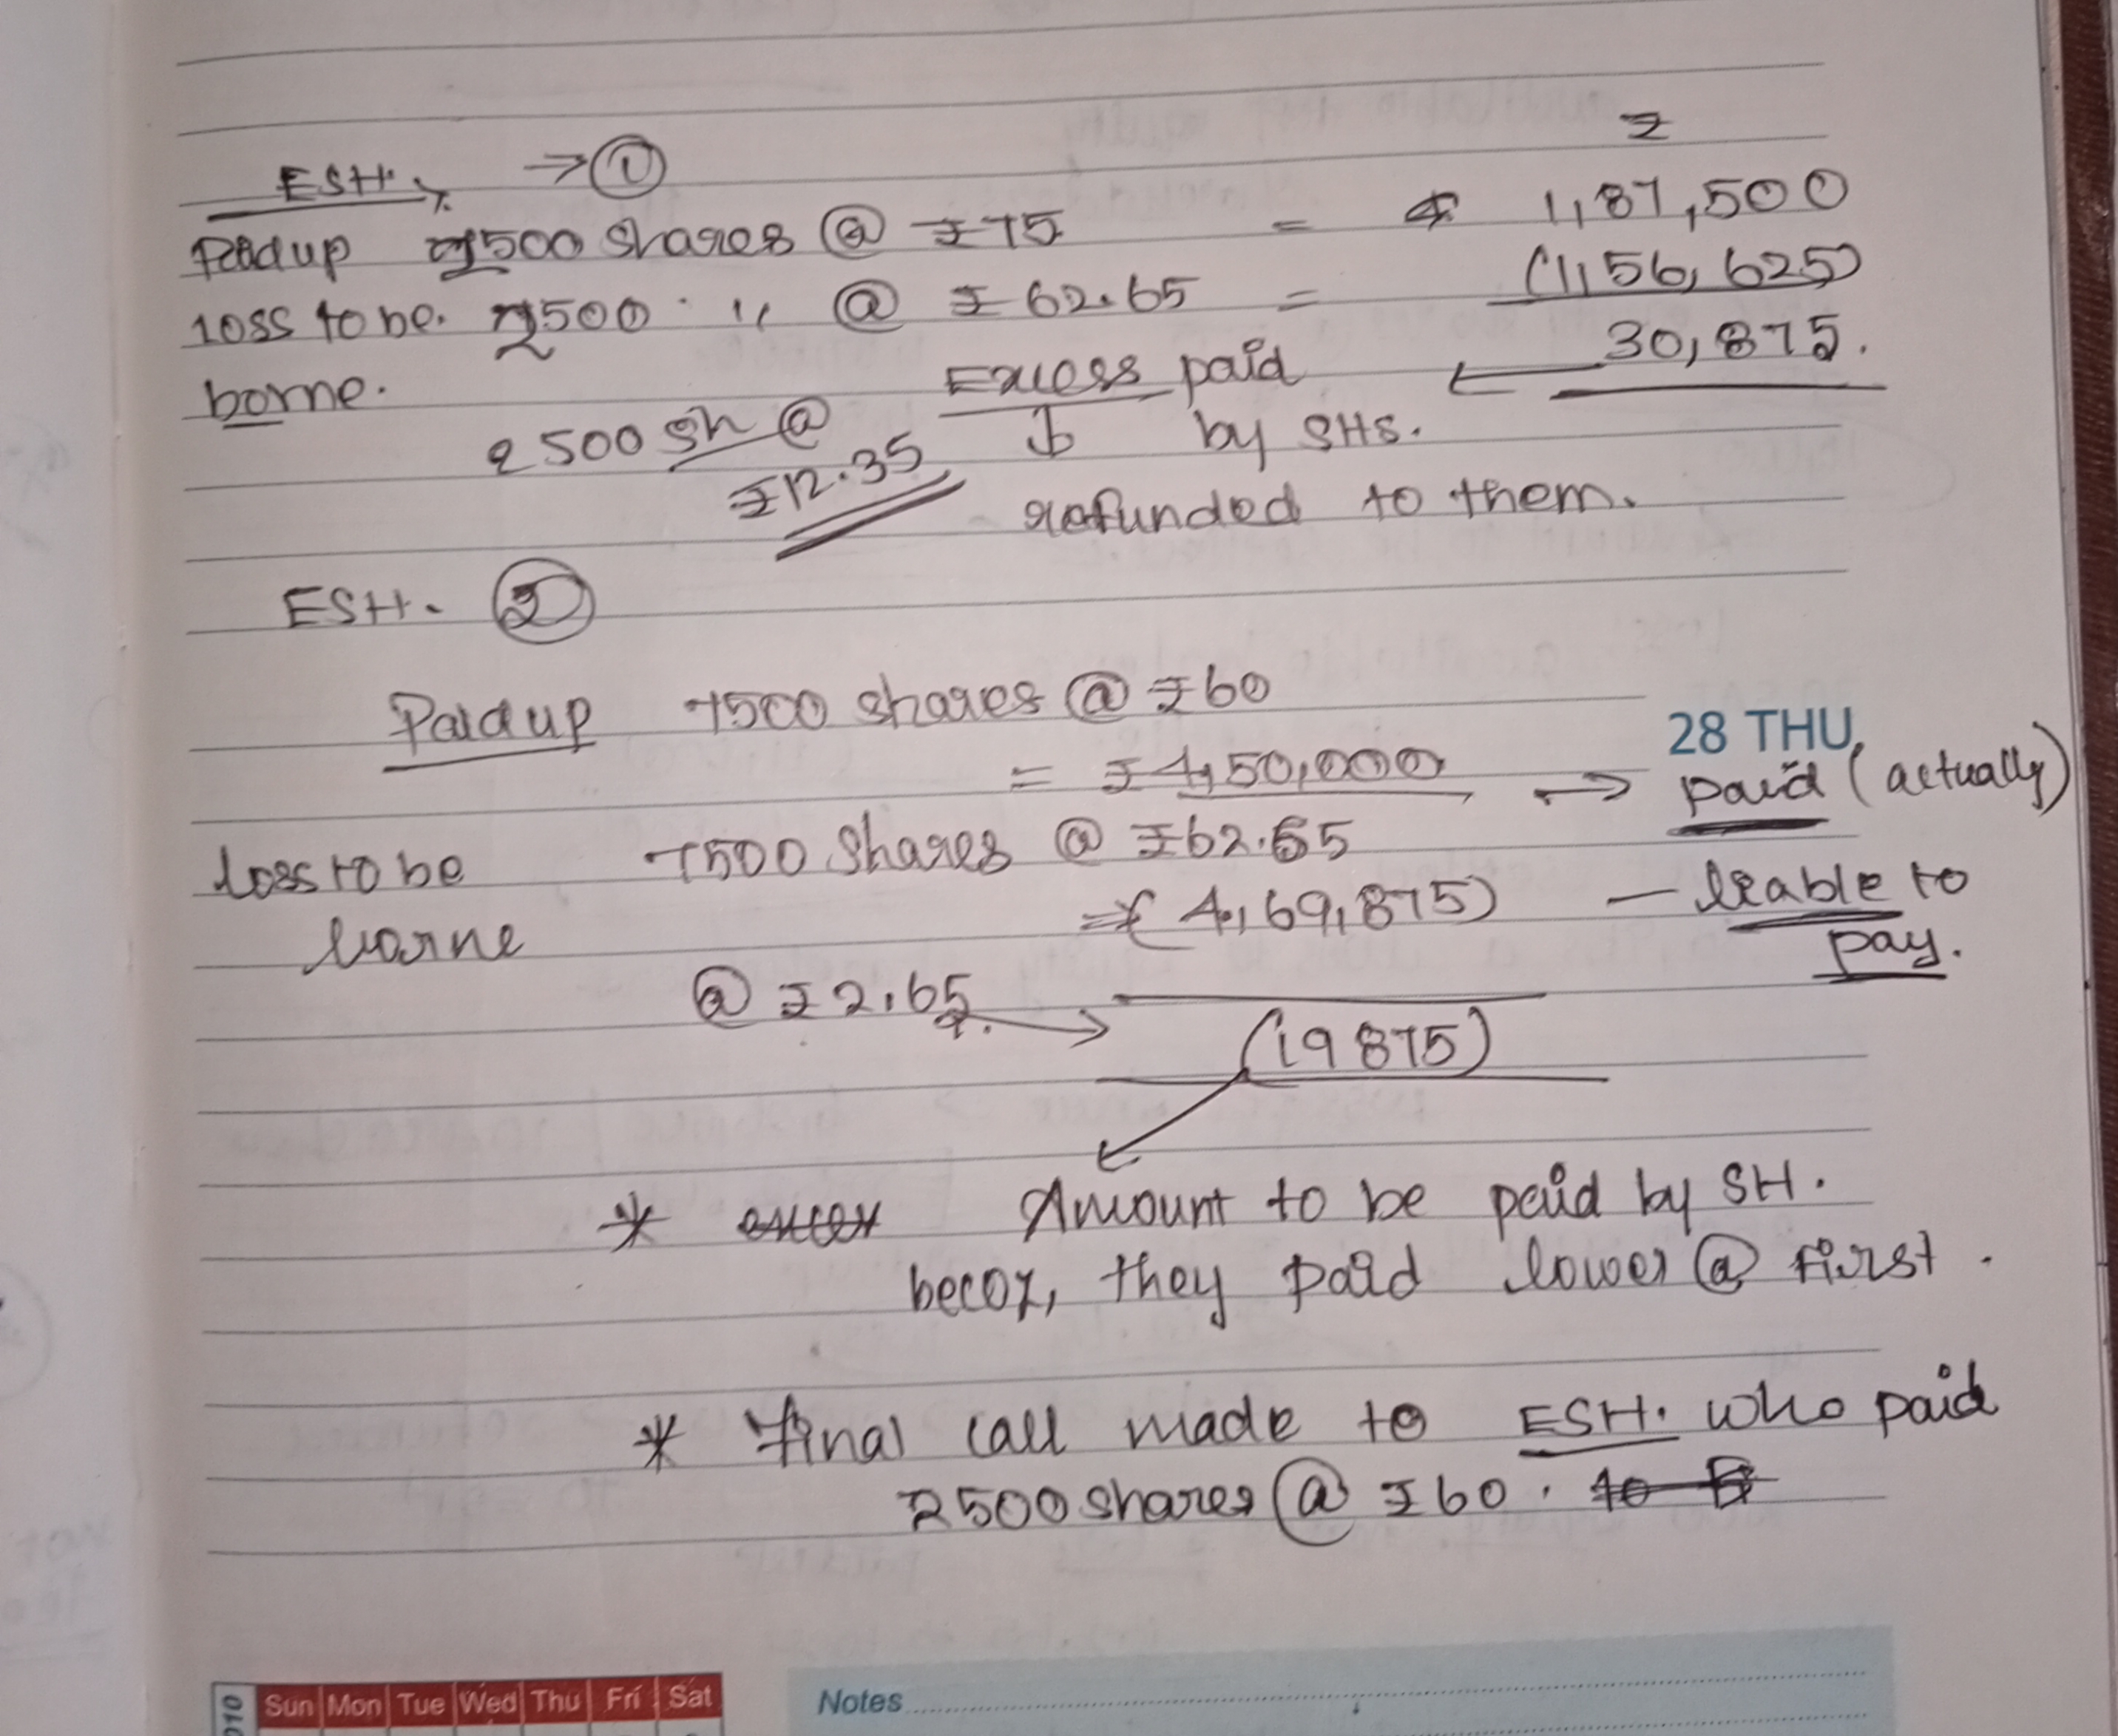 ₹
ESH. → ①
Paid up 2500 shares @ ₹75 = 1,87,500
loss to be. 2500 ,, @ ₹ 62.65 = (1,56,625)
borne. 30,875.
Excess paid ←
2500 sh @ ↓ by SHs.
₹12.35
refunded to them.
ESH. ②
Paid up 7500 shares @ ₹60
28 THU
= ₹4,50,000 → paid (actually)
loss to be 7500 shares @ ₹62.65
borne =₹ (4,69,875) — leable to
pay.
@ ₹2.65 →
(19875)
* Amount to be paid by SH.
becoz, they paid lower @ first.
* final call made to ESH. who paid
2500 shares @ ₹60.
Sun Mon Tue Wed Thu Fri Sat
Notes